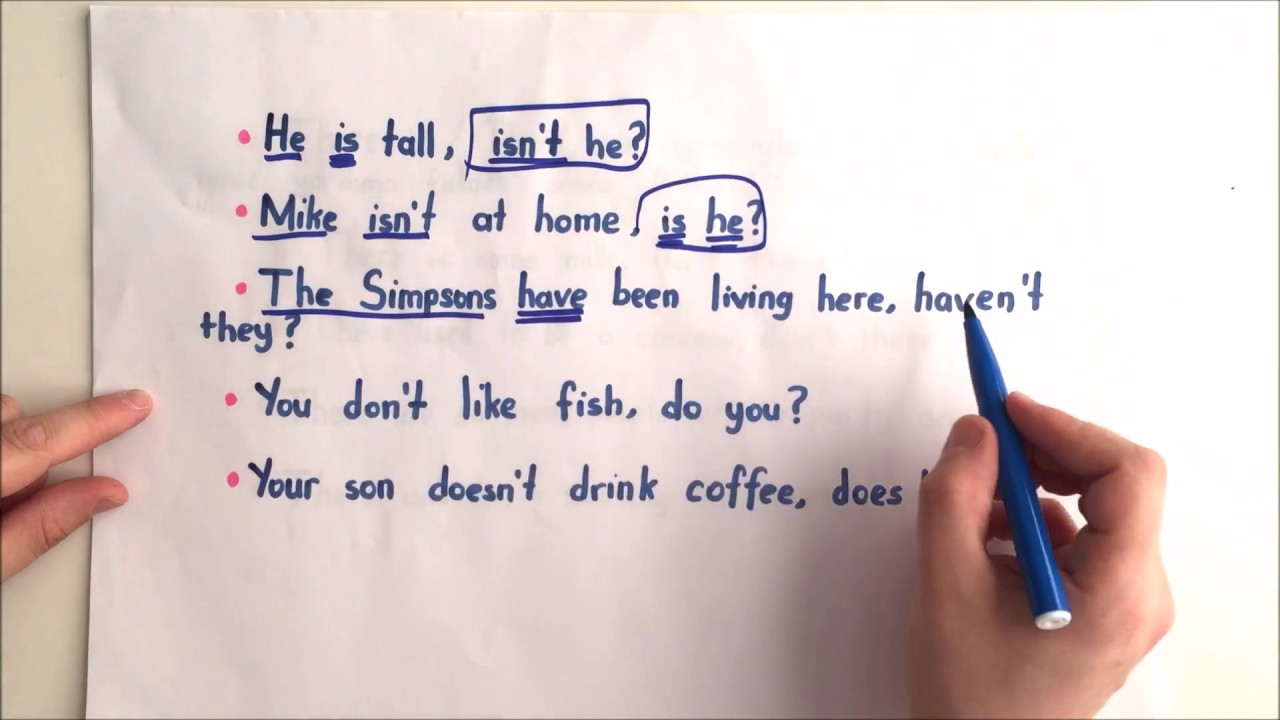 • He is tall, isn't he?
• Mike isn't at home, is he?
• The Simpsons have been living here, haven't
they?
• You don't like fish, do you?
• Your son doesn't drink coffee, does